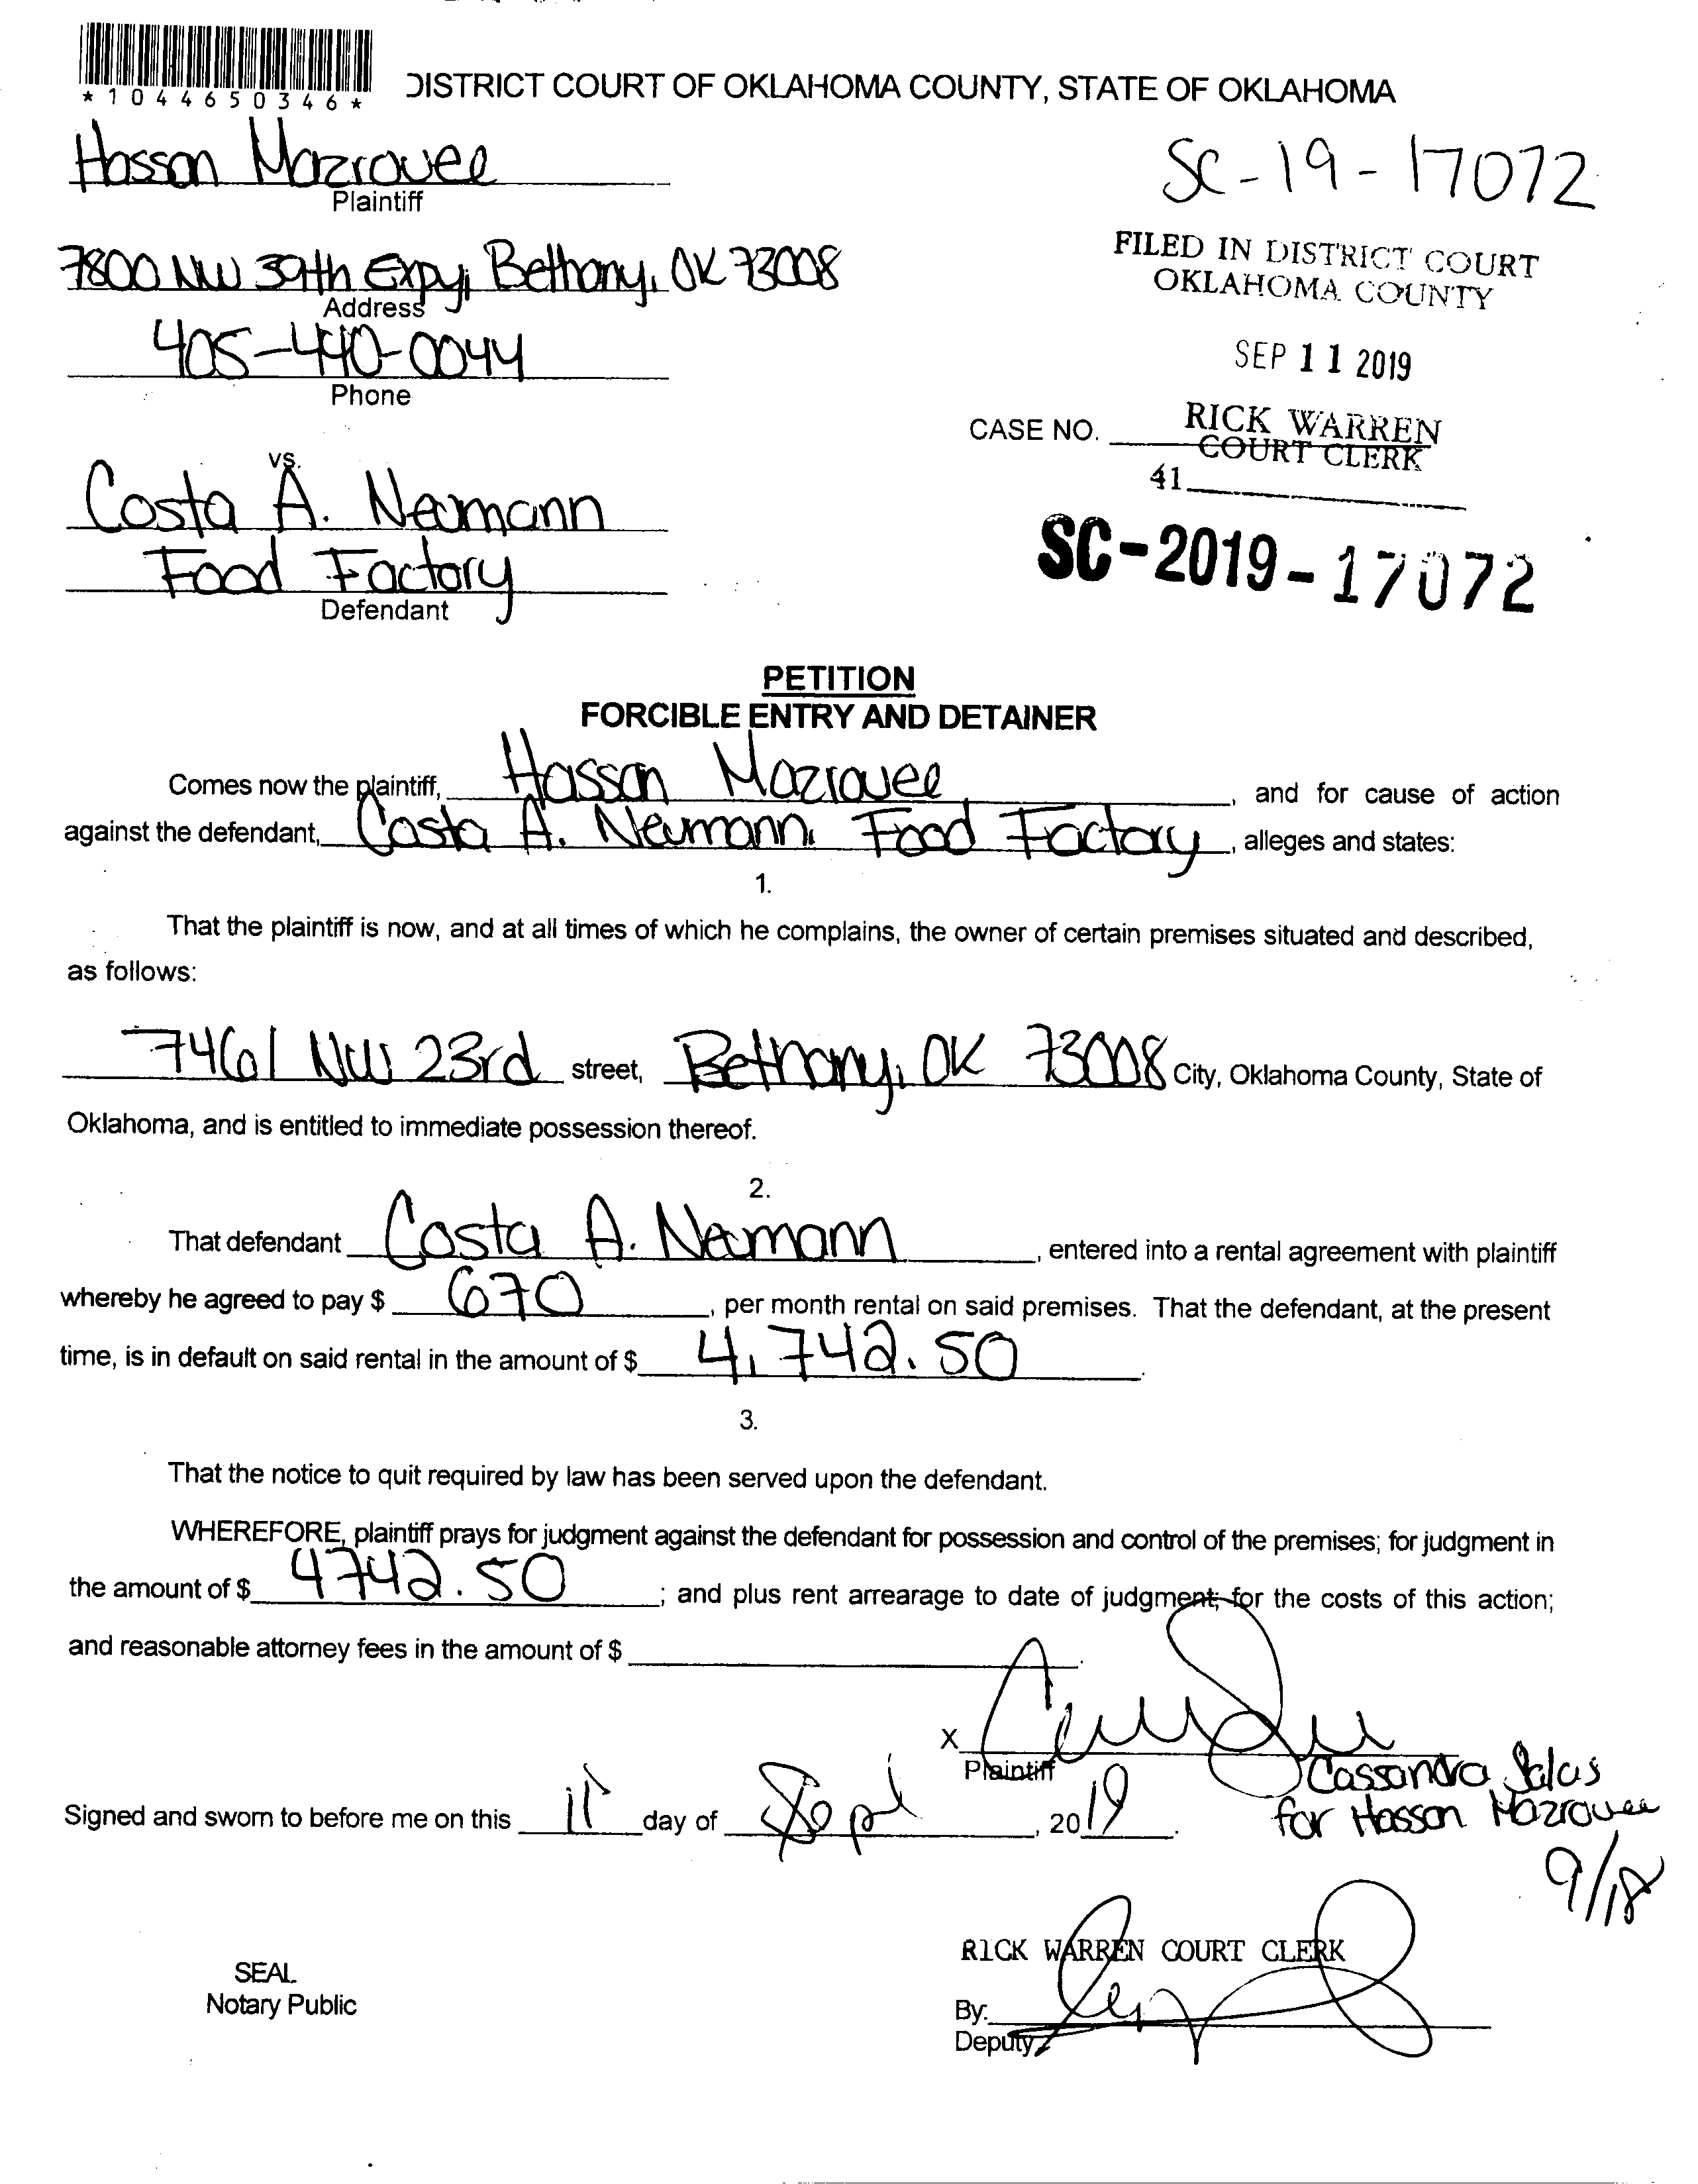 *1044650346*
DISTRICT COURT OF OKLAHOMA COUNTY, STATE OF OKLAHOMA
Hassan Mazrouee
Plaintiff
SC-19-17072
7800 NW 39th Expy, Bethany, OK 73008
Address
FILED IN DISTRICT COURT
OKLAHOMA COUNTY
405-440-0044
Phone
SEP 11 2019
CASE NO.
RICK WARREN
COURT CLERK
41
vs.
Costa A. Neumann
Food Factory
Defendant
SC-2019-17072
PETITION
FORCIBLE ENTRY AND DETAINER
Comes now the plaintiff, Hassan Mazrouee, and for cause of action
against the defendant, Costa A. Neumann, Food Factory, alleges and states:
1.
That the plaintiff is now, and at all times of which he complains, the owner of certain premises situated and described,
as follows:
7461 NW 23rd street, Bethany, OK 73008 City, Oklahoma County, State of
Oklahoma, and is entitled to immediate possession thereof.
2.
That defendant Costa A. Neumann, entered into a rental agreement with plaintiff
whereby he agreed to pay $ 670, per month rental on said premises. That the defendant, at the present
time, is in default on said rental in the amount of $ 4,742.50.
3.
That the notice to quit required by law has been served upon the defendant.
WHEREFORE, plaintiff prays for judgment against the defendant for possession and control of the premises; for judgment in
the amount of $ 4742.50; and plus rent arrearage to date of judgment; for the costs of this action;
and reasonable attorney fees in the amount of $
X
Plaintiff
Cassandra Salas
for Hassan Mazrouee
Signed and sworn to before me on this 11 day of Sept, 2019.
9/18
RICK WARREN COURT CLERK
SEAL
Notary Public
By:
Deputy